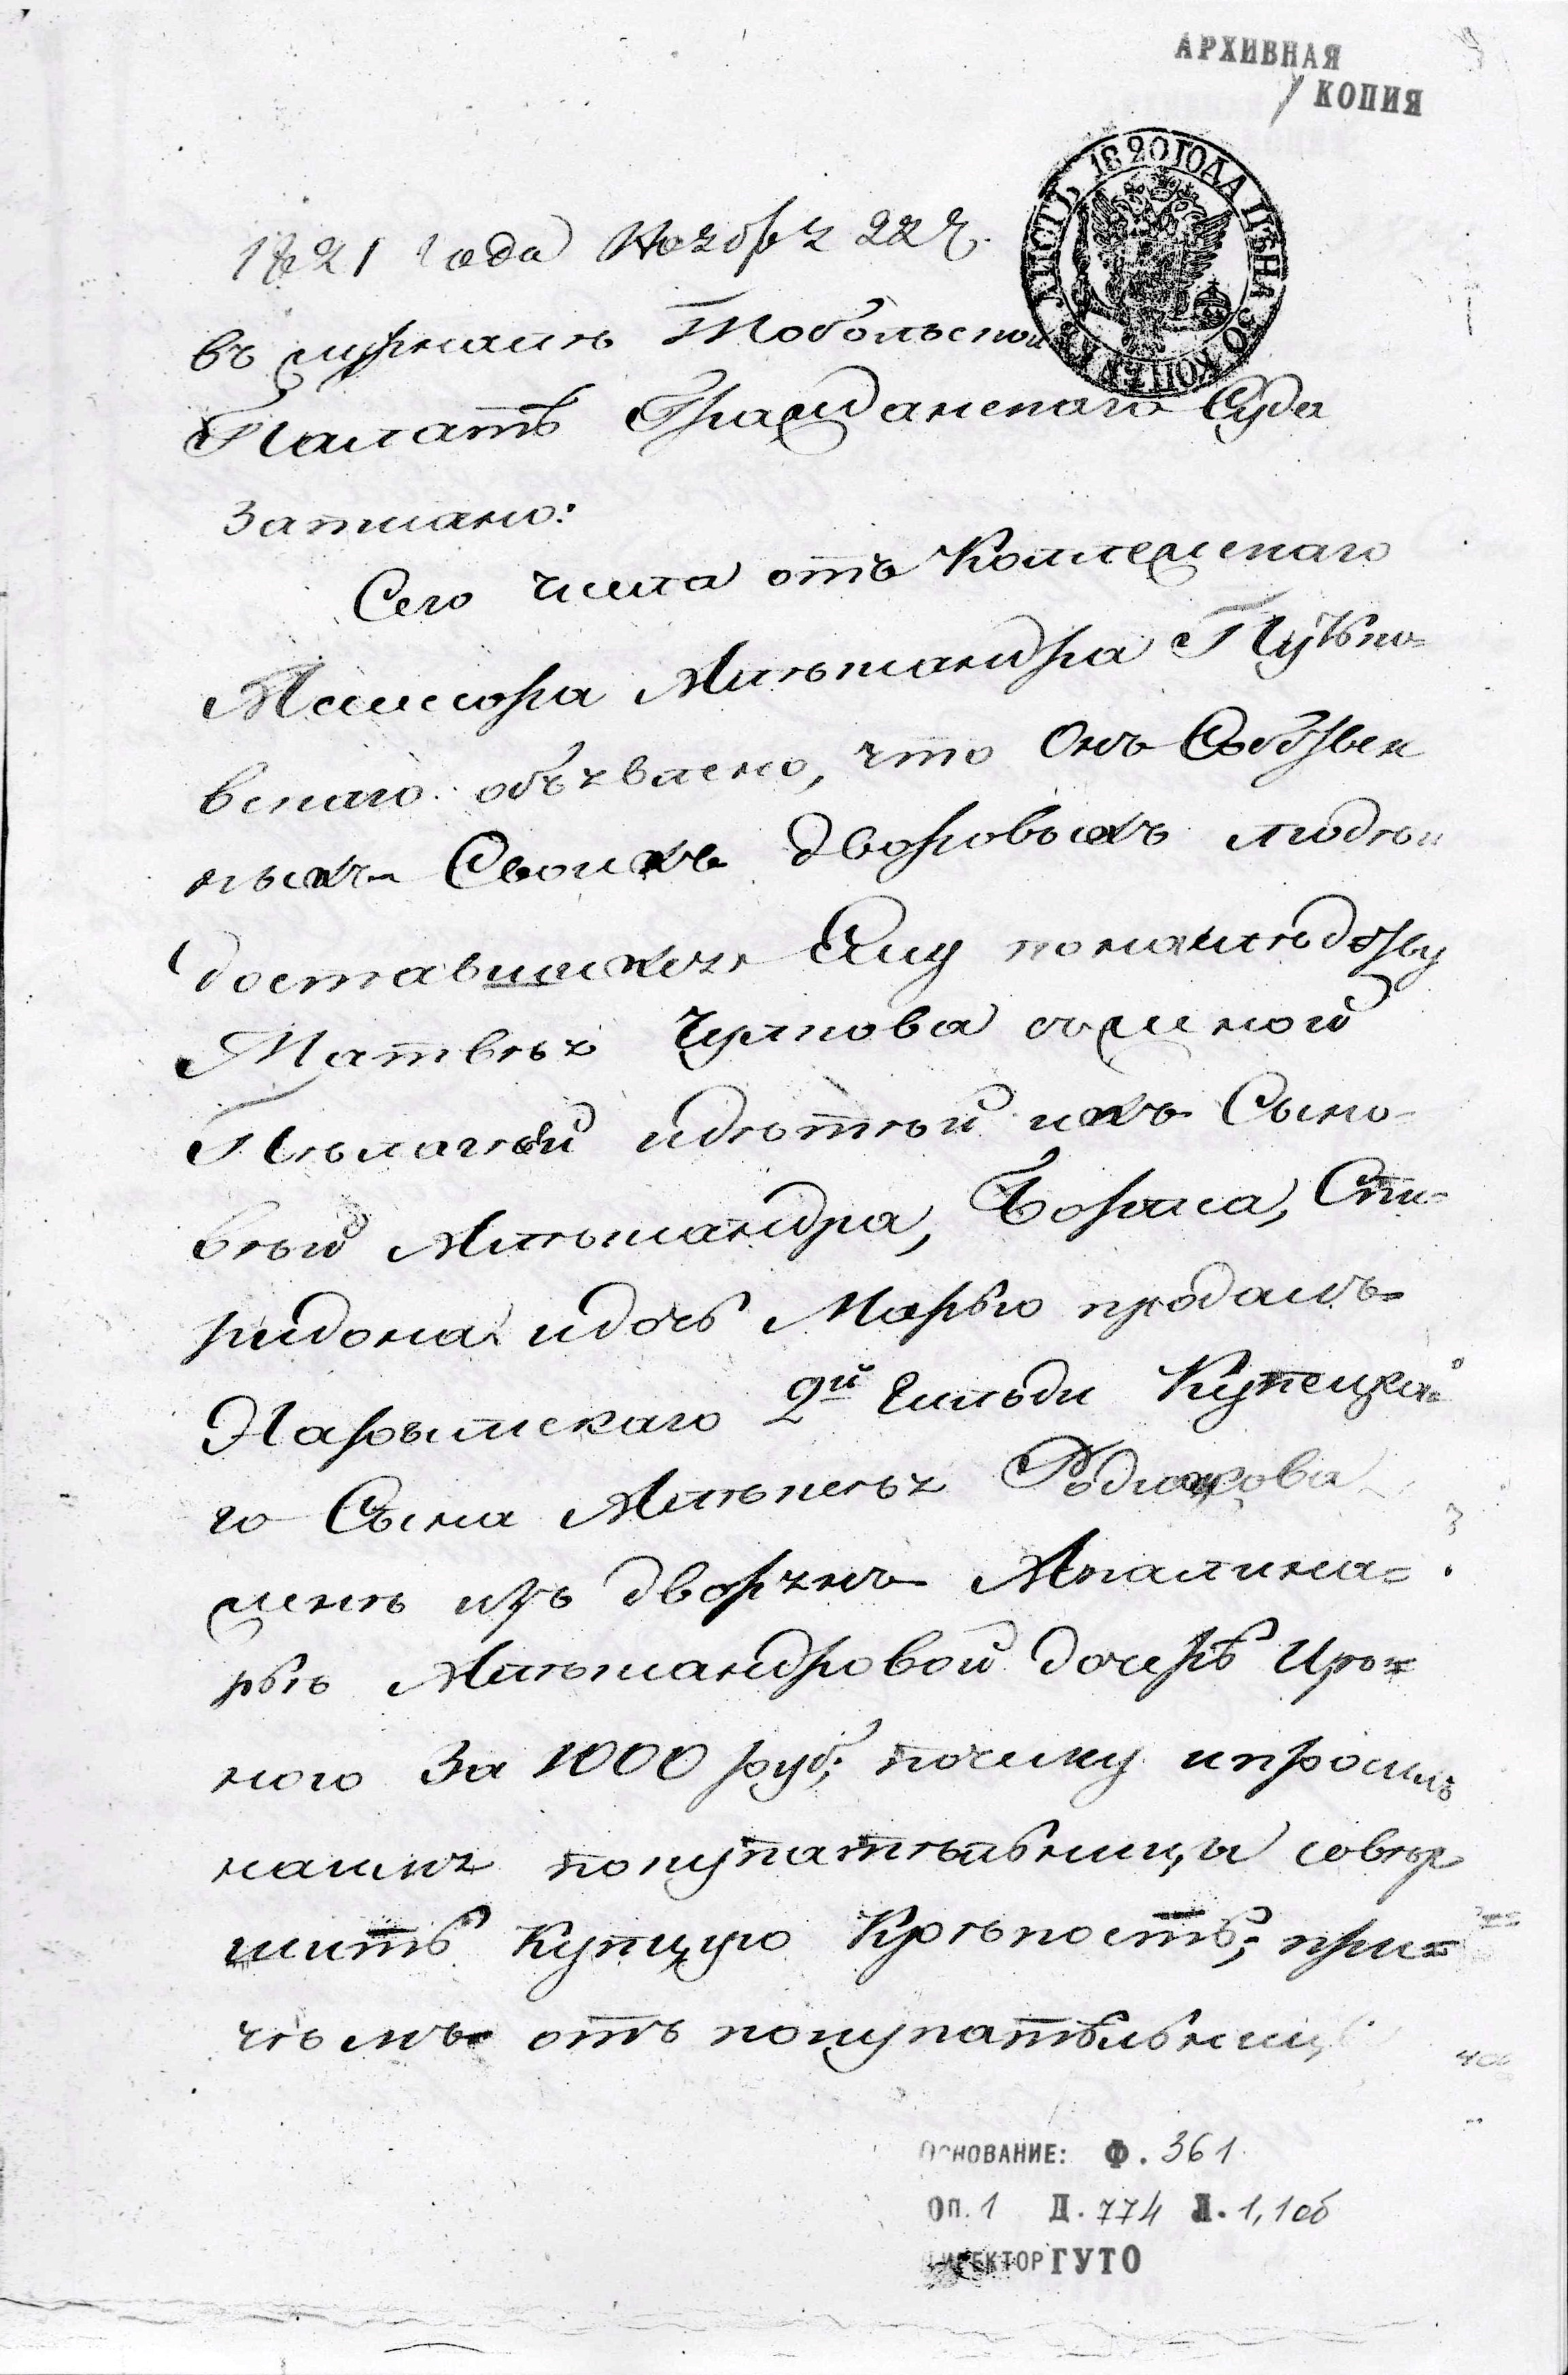 АРХИВНАЯ
КОПИЯ
ЛИСТЪ 1820 ГОДА ЦѢНА 50 КОПѢЕКЪ
1821 года Ноября 22 ч.
въ журналѣ Тобольской
Палатѣ Гражданскаго Суда
записано:
Сего числа отъ Коллежскаго
Ассессора Александра
вскаго объявлено, что Онъ Собствен
ныхъ Своихъ дворовыхъ людей
доставшихся Ему по наследству
Матвея Чупова съ женой
Пелагеей идетей ихъ Сыно-
вей Александра, Бориса, Спи-
ридона идочь Марью продалъ
Нарымскаго 2й Гильди Купецка-
го Сына Алексея Родюкова
жене изъ дворянъ Апалина-
рье Александровой дочерѣ
за 1000 руб; почему ипросилъ
наимя покупательницы совер
шить Купчую Крепость; при=
чемъ отъ покупательницы
ОСНОВАНИЕ: Ф. 361
Оп. 1 Д. 774 Л. 1, 1об
ДИРЕКТОР ГУТО